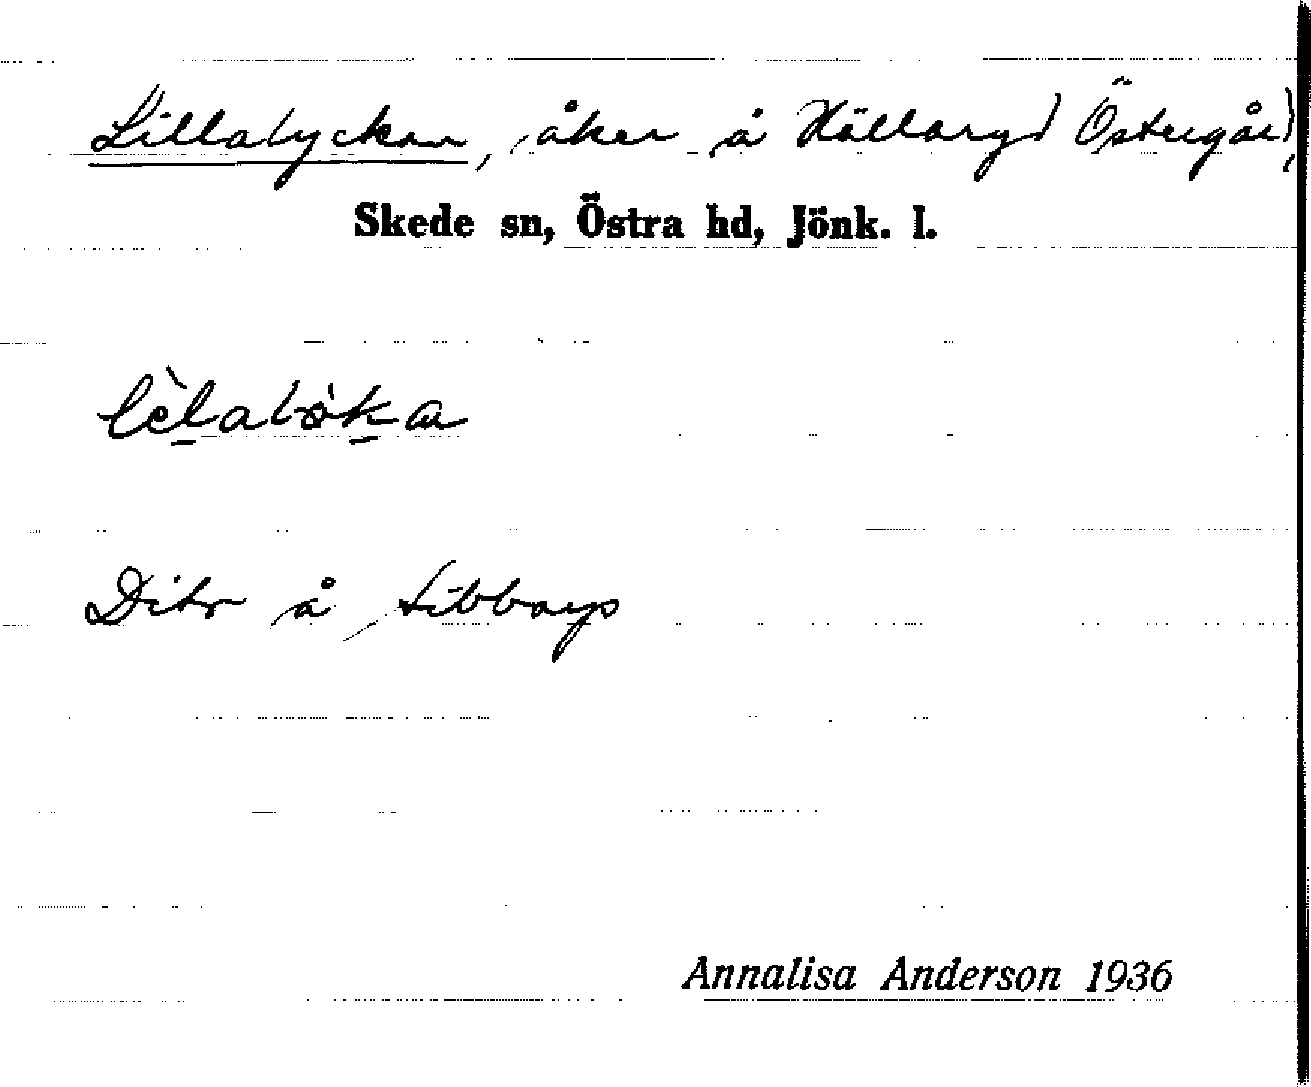 Lillalyckan, åker å Hällaryd Östergård,
Skede sn, Östra hd, Jönk. l.
lèlalö̀ka
Dito å Libbarps
Annalisa Anderson 1936